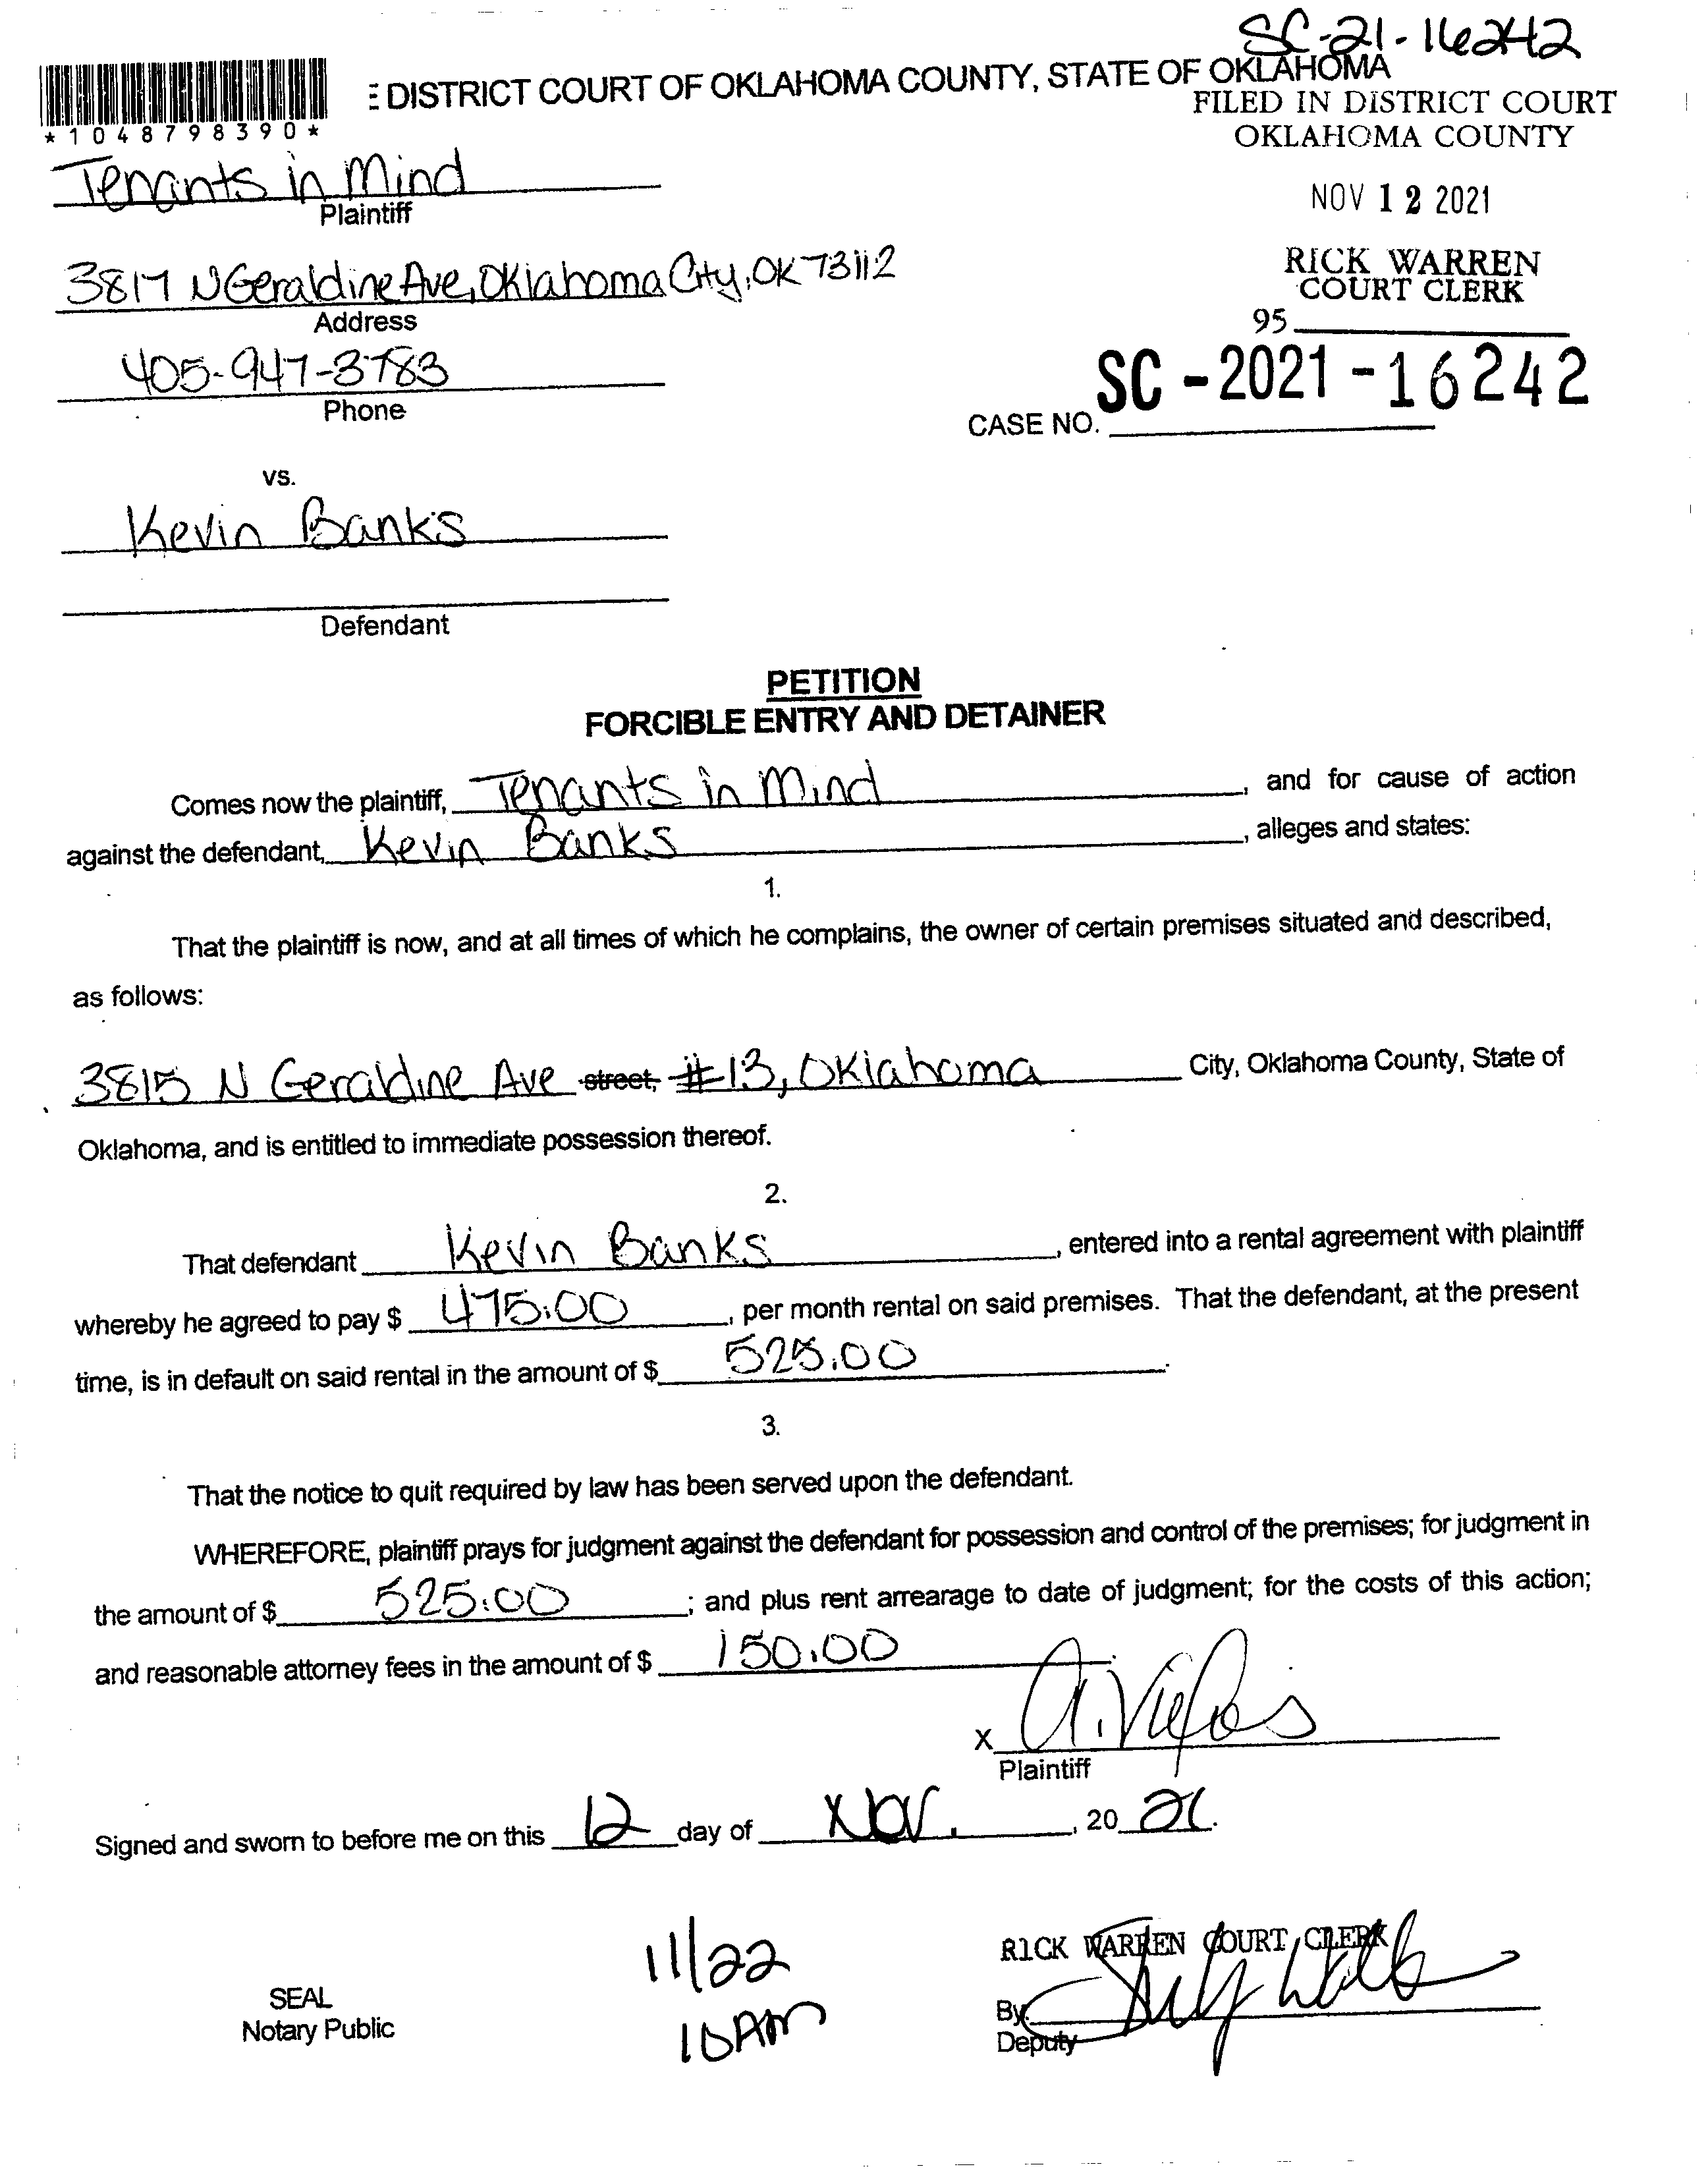 SC-21-16242
E DISTRICT COURT OF OKLAHOMA COUNTY, STATE OF OKLAHOMA
FILED IN DISTRICT COURT
OKLAHOMA COUNTY
*1048798390*
Tenants in Mind
Plaintiff
NOV 12 2021
3817 N Geraldine Ave, Oklahoma City, OK 73112
Address
RICK WARREN
COURT CLERK
95
405-947-3783
Phone
CASE NO. SC-2021-16242
vs.
Kevin Banks
Defendant
PETITION
FORCIBLE ENTRY AND DETAINER
Comes now the plaintiff, Tenants in Mind, and for cause of action
against the defendant, Kevin Banks, alleges and states:
1.
That the plaintiff is now, and at all times of which he complains, the owner of certain premises situated and described,
as follows:
3815 N Geraldine Ave street, #13, Oklahoma City, Oklahoma County, State of
Oklahoma, and is entitled to immediate possession thereof.
2.
That defendant Kevin Banks, entered into a rental agreement with plaintiff
whereby he agreed to pay $ 475.00, per month rental on said premises. That the defendant, at the present
time, is in default on said rental in the amount of $ 525.00.
3.
That the notice to quit required by law has been served upon the defendant.
WHEREFORE, plaintiff prays for judgment against the defendant for possession and control of the premises; for judgment in
the amount of $ 525.00; and plus rent arrearage to date of judgment; for the costs of this action;
and reasonable attorney fees in the amount of $ 150.00.
X
Plaintiff
Signed and sworn to before me on this 12 day of Nov., 20 21.
11/22
10AM
RICK WARREN COURT CLERK
SEAL
Notary Public
By
Deputy